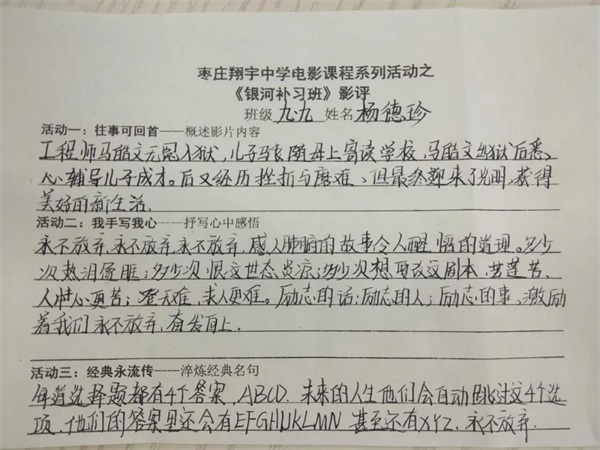 枣庄翔宇中学电影课程系列活动之
《银河补习班》影评
班级 九九 姓名 杨德珍
活动一：往事可回首——概述影片内容
工程师马皓文无冤入狱，儿子马飞随母上寄读学校，马皓文出狱后悉
心辅导儿子成才。后又经历挫折与磨难、但最终迎来了光明，获得
美好的新生活.
活动二：我手写我心——抒写心中感悟
永不放弃，永不放弃，永不放弃，感人肺腑的故事令人醒悟的道理。多少
次热泪偎眶；多少次恨这世态炎凉；多少次想再改这剧本，黄莲苦、
人性心更苦；登天难，求人更难。励志的话；励志的人；励志的事、激励
着我们永不放弃，奋发向上.
活动三：经典永流传——淬炼经典名句
每道选择题都有4个答案，ABCD. 未来的人生他们会自动跳过这4个选
项. 他们的答案里还会有EFGHIJKLMN 甚至还有XYZ. 永不放弃.